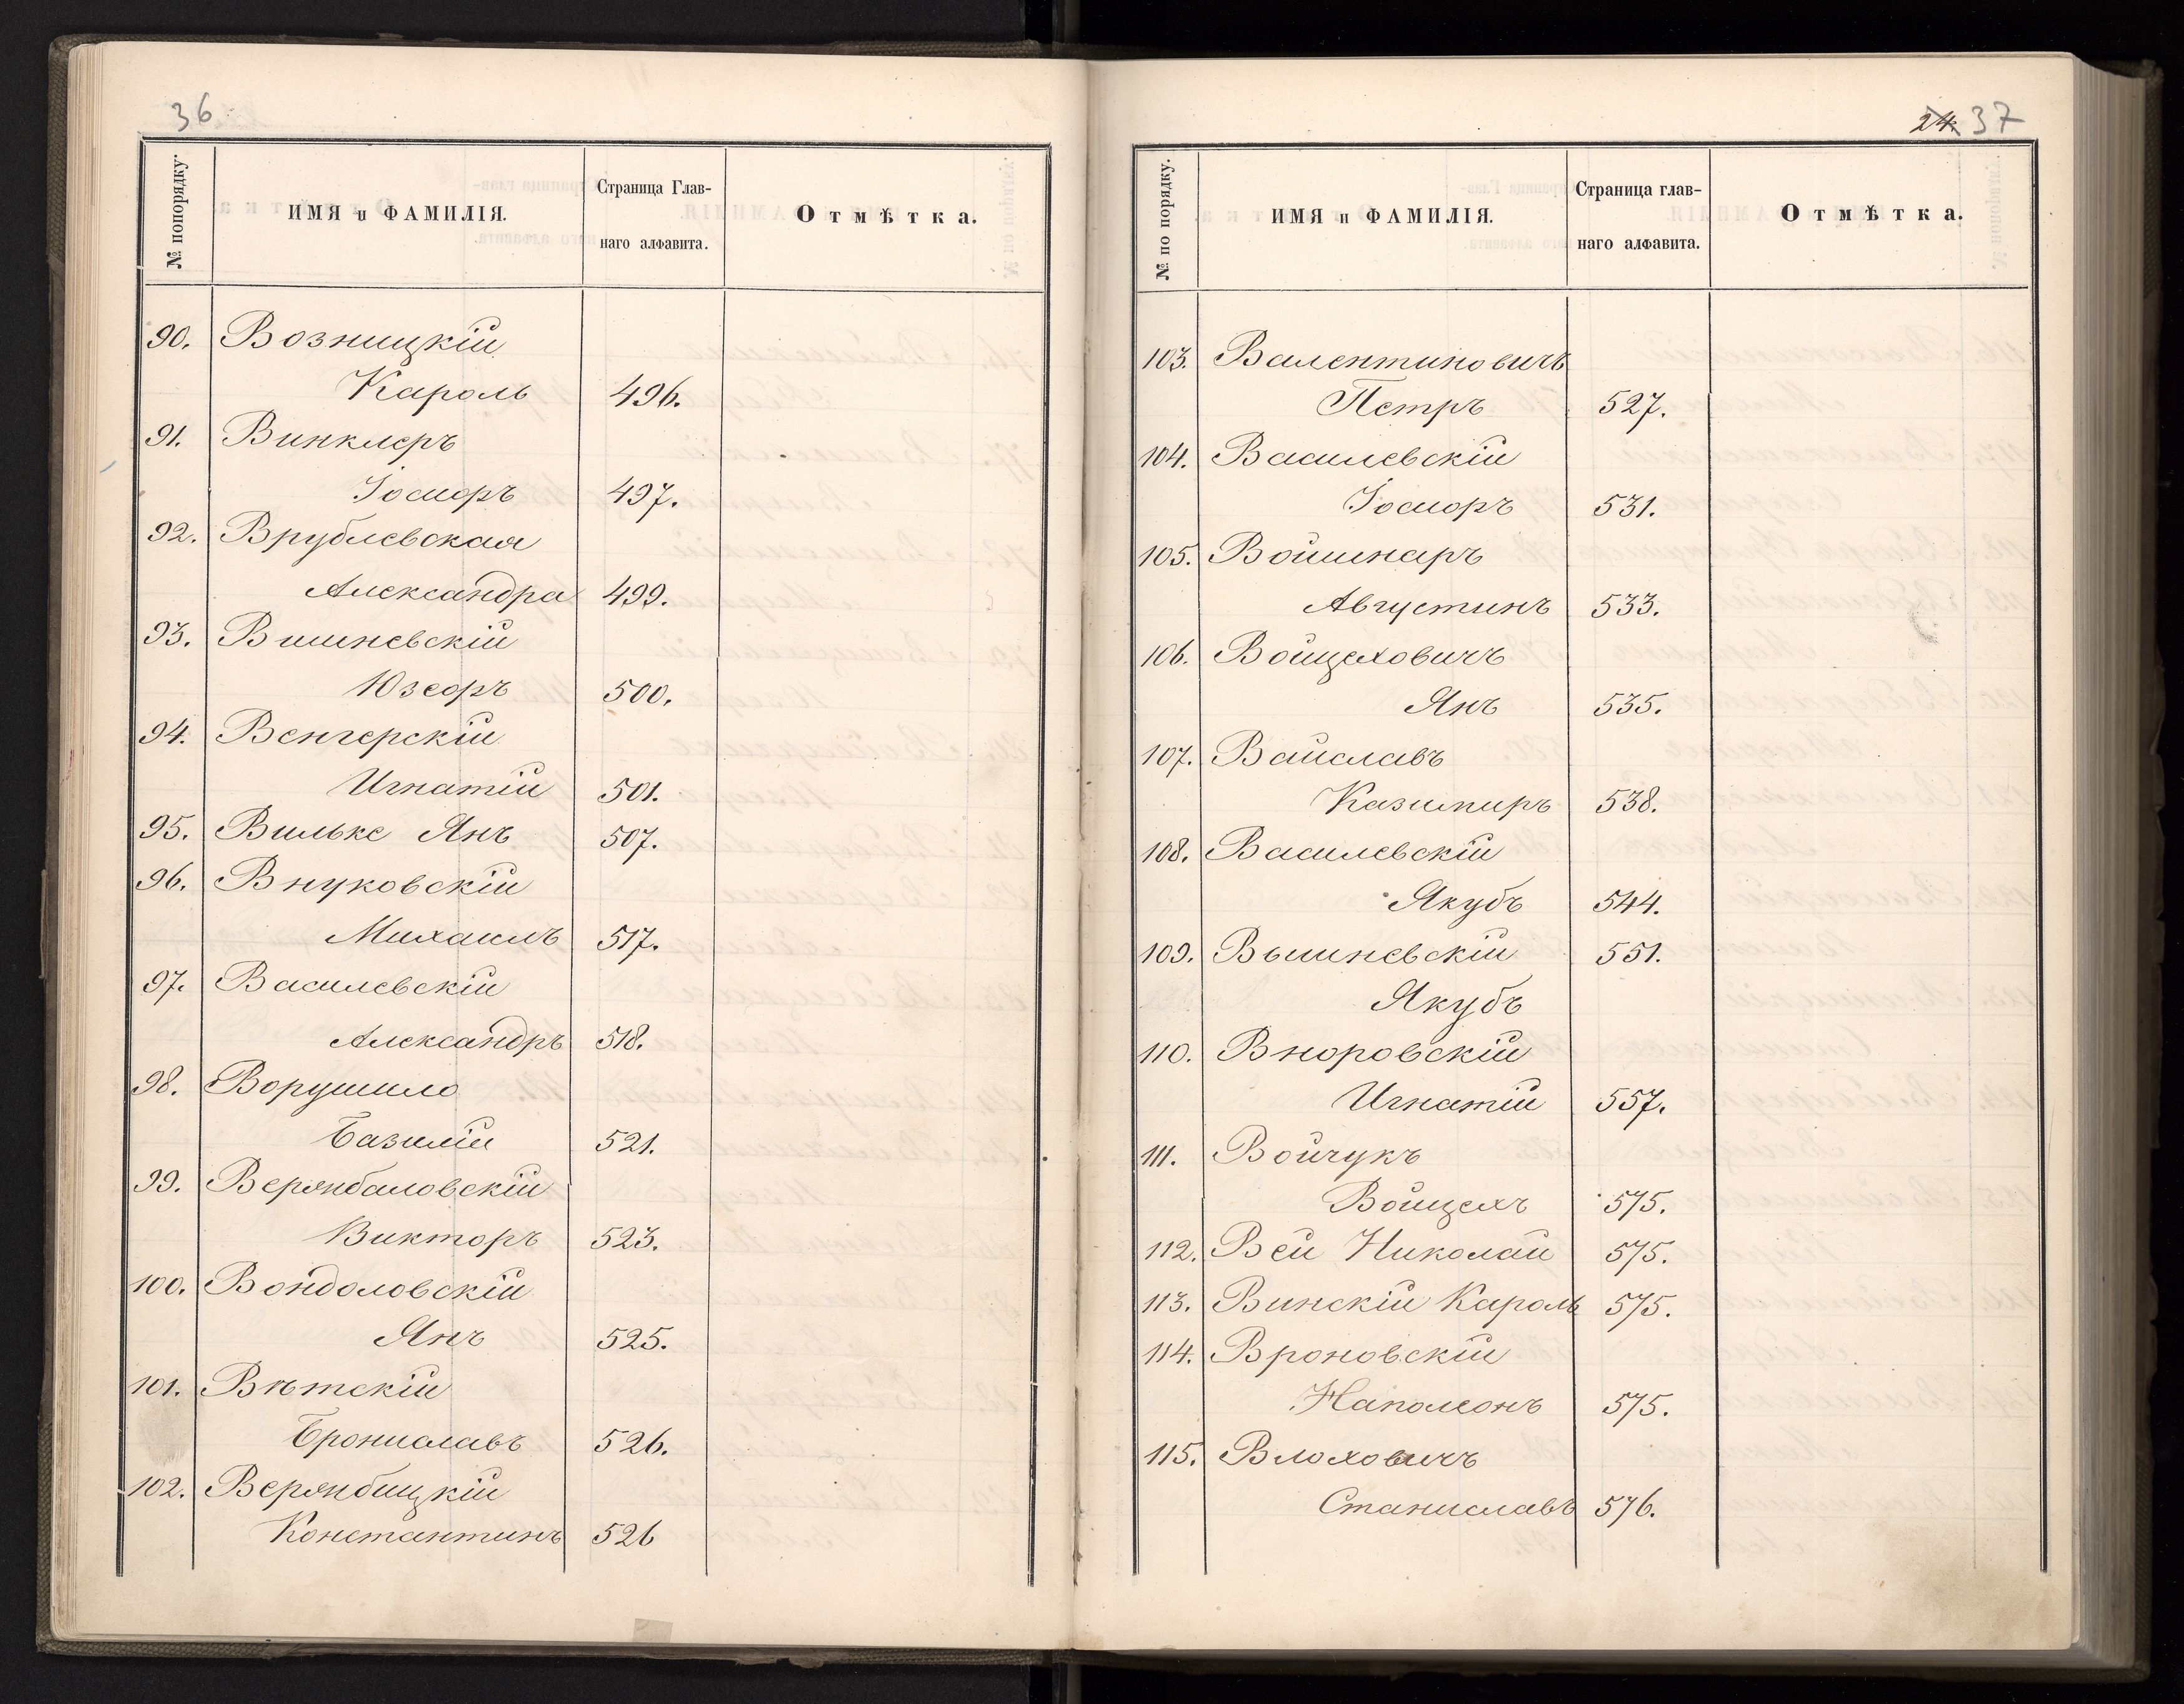 36
№ попорядку. ИМЯ и ФАМИЛІЯ. Страница Глав-наго алфавита. Отмѣтка.
90. Возницкій
Кароль 496.
91. Винклеръ
Іосифъ 497.
92. Врублевская
Александра 499.
93. Вишневскій
Юзефъ 500.
94. Венгерскій
Игнатій 501.
95. Вильке Янъ 507.
96. Внуковскій
Михаилъ 517.
97. Василевскій
Александръ 518.
98. Ворушило
Базилій 521.
99. Вержбаловскій
Викторъ 523.
100. Вондоловскій
Янъ 525.
101. Вѣтскій
Брониславъ 526.
102. Вержбицкій
Константинъ 526
24 37
№ по порядку. ИМЯ и ФАМИЛІЯ. Страница глав-наго алфавита. Отмѣтка.
103. Валентиновичъ
Петръ 527.
104. Василевскій
Іосифъ 531.
105. Войшнаръ
Августинъ 533.
106. Войцеховичъ
Янъ 535.
107. Вайславъ
Казимиръ 538.
108. Василевскій
Якубъ 544.
109. Вышневскій 551.
Якубъ
110. Вноровскій
Игнатій 557.
111. Войчукъ
Войцехъ 575.
112. Вей Николай 575.
113. Винскій Кароль 575.
114. Вроновскій
Наполеонъ 575.
115. Влоховичъ
Станиславъ 576.